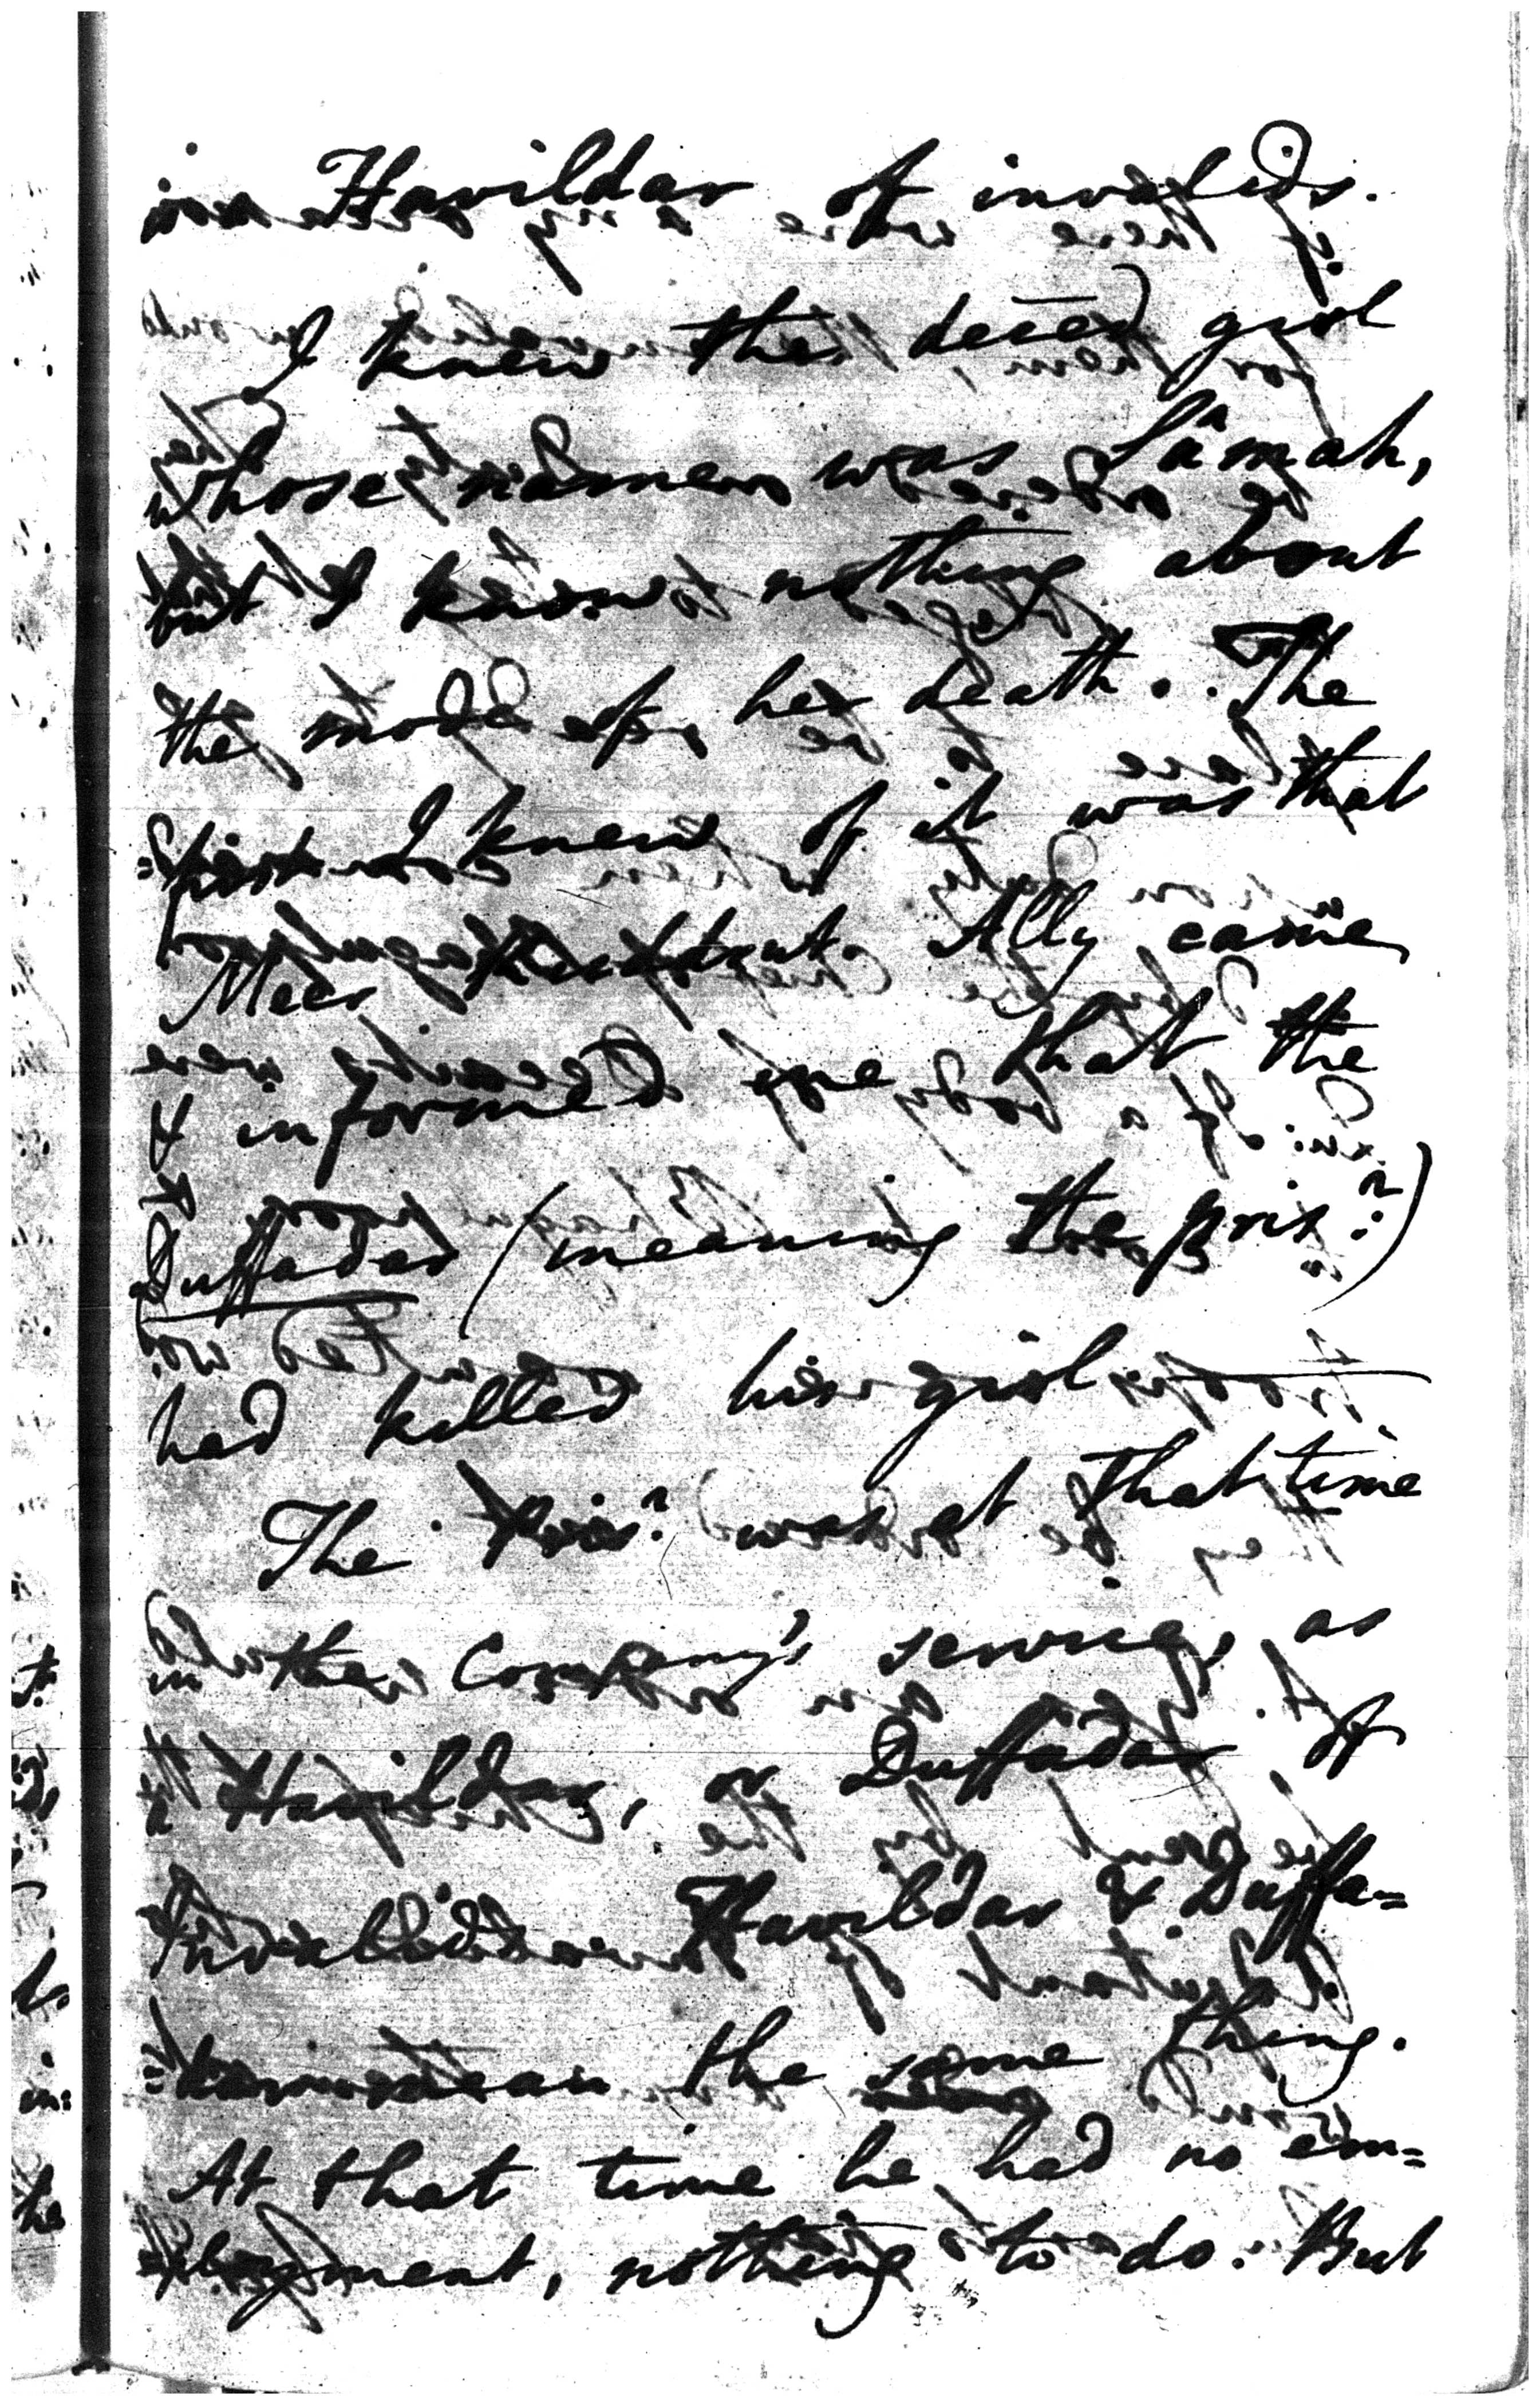 is a Havildar of invalids.
I knew the deced girl
whose name was Sâmah,
but I know nothing about
the mode of her death. The
first I knew of it was that
Meer Ally came
& informed me that the
Duffadar (meaning the prisr.)
had killed his girl —
The Prisr. was at that time
in the Company's service, as
a Havildar, or Duffadar of
Invalids. Havildar & Duffa=
=dar mean the same thing.
At that time he had no em=
=ployment, nothing to do. But